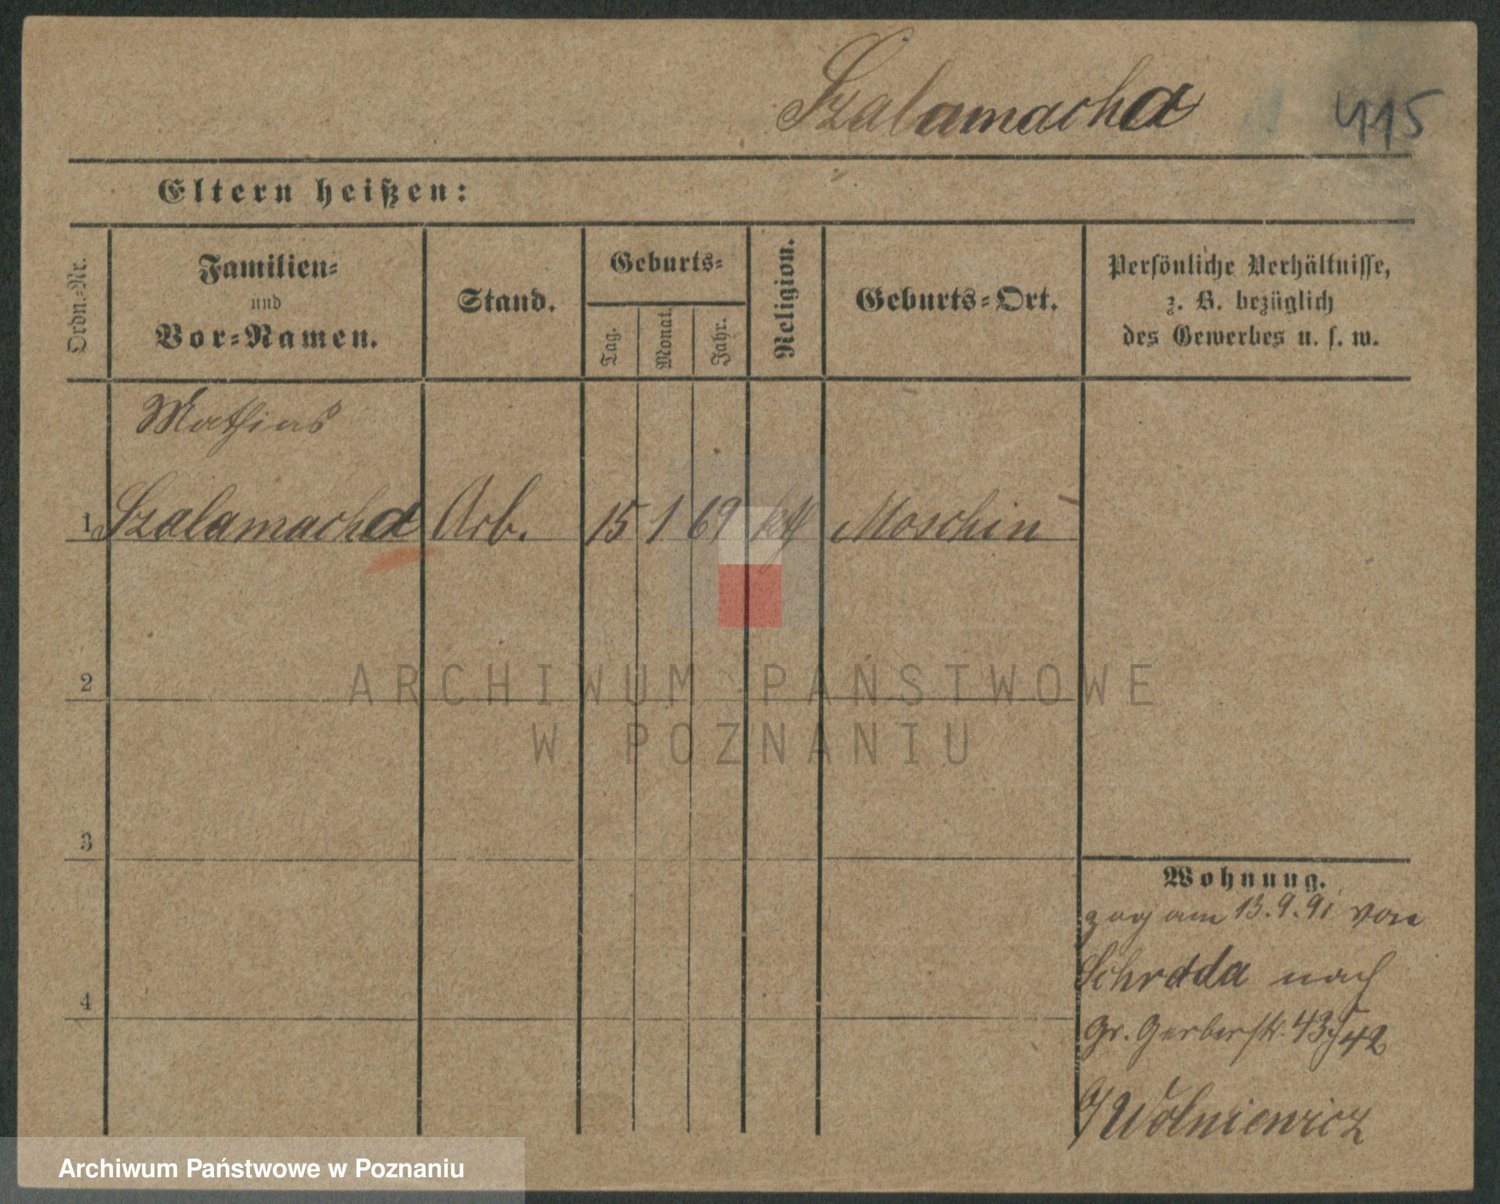 Szalamacha 415
Eltern heißen:
Ordn.=Nr.
Familien=
und
Vor=Namen.
Stand.
Geburts=
Tag.
Monat.
Jahr.
Religion.
Geburts=Ort.
Persönliche Verhältnisse,
z. B. bezüglich
des Gewerbes u. s. w.
Mathias
1 Szalamacha Arb. 15 1 69 kth Moschin
2
3
4
Wohnung.
zog am 13.9.91 von
Schrodda nach
Gr. Gerberstr. 43/42
Wolniewicz
ARCHIWUM PAŃSTWOWE
W POZNANIU
Archiwum Państwowe w Poznaniu